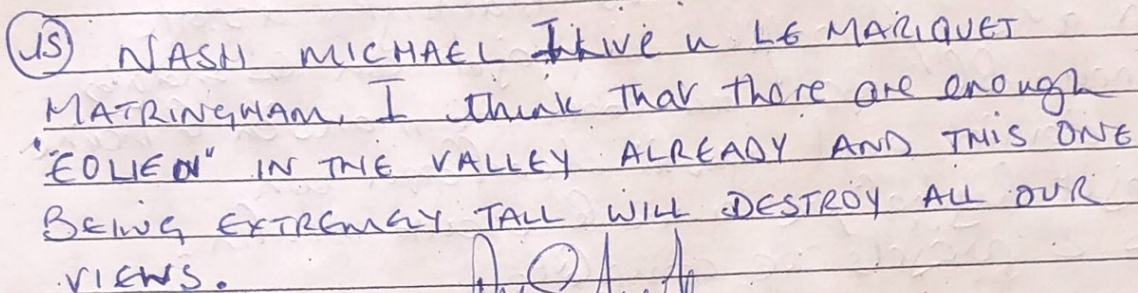 15 NASH MICHAEL I live in LE MARIQUET
MATRINGHAM, I think that there are enough
"EOLIEN" IN THE VALLEY ALREADY AND THIS ONE
BEING EXTREMELY TALL WILL DESTROY ALL OUR
VIEWS.